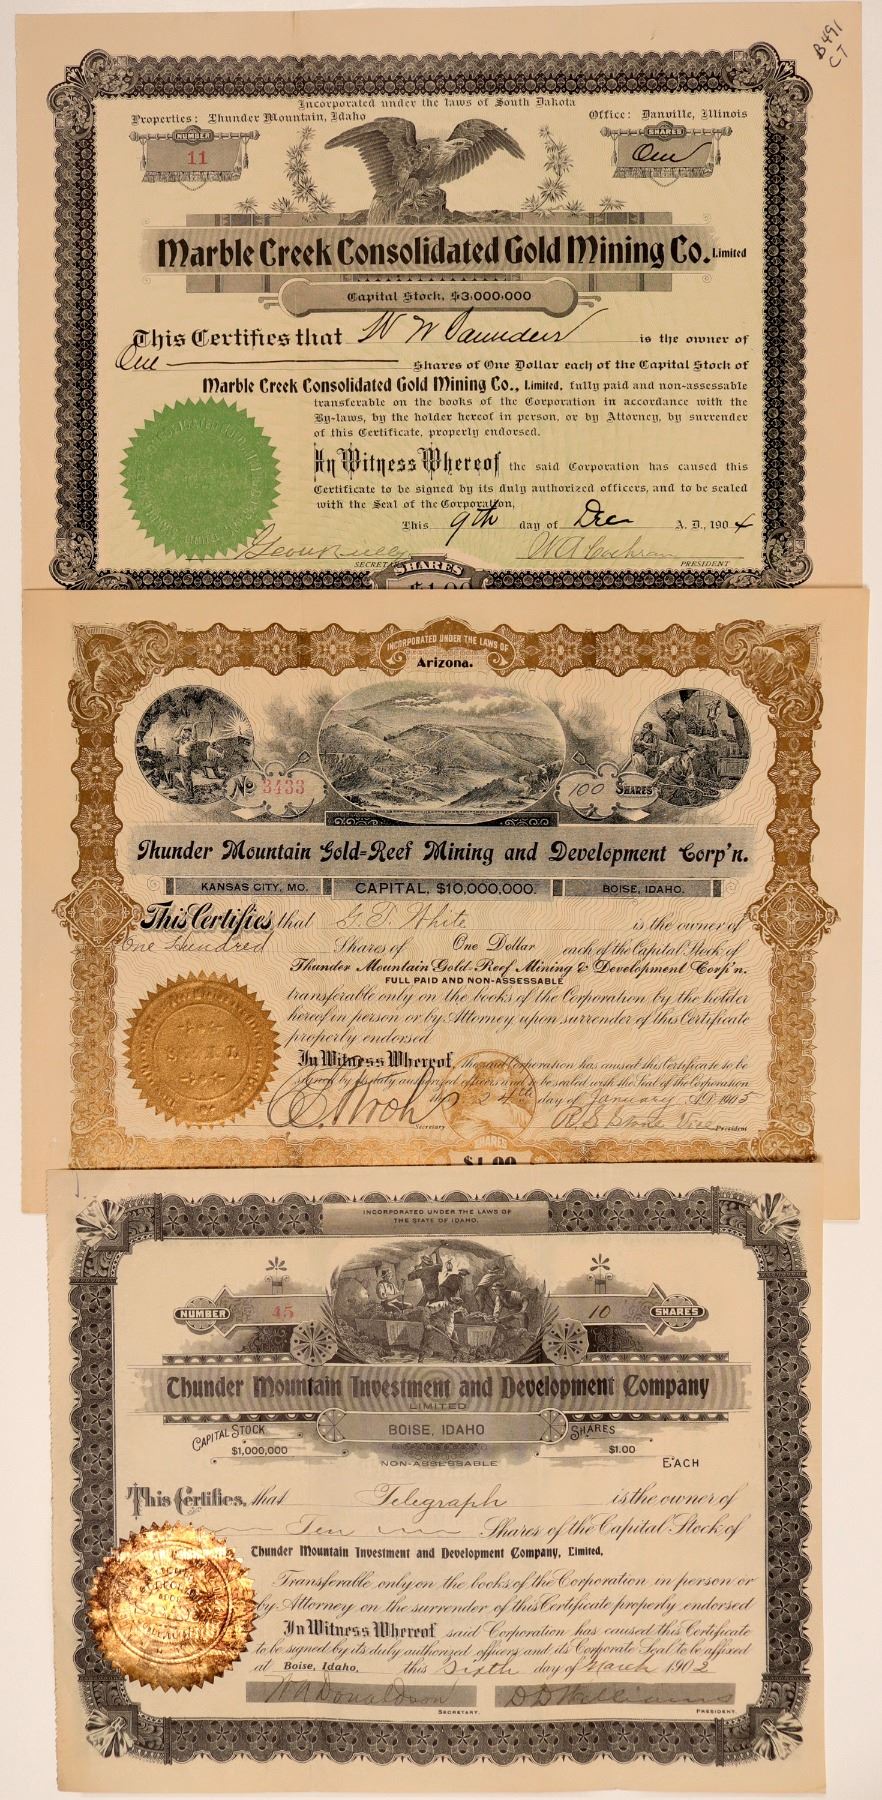 B491
CT
Incorporated under the laws of South Dakota
Properties: Thunder Mountain, Idaho
Office: Danville, Illinois
NUMBER
11
SHARES
One
Marble Creek Consolidated Gold Mining Co. Limited
Capital Stock, $3,000,000
This Certifies that W W Saunders is the owner of
One Shares of One Dollar each of the Capital Stock of
Marble Creek Consolidated Gold Mining Co., Limited, fully paid and non-assessable
transferable on the books of the Corporation in accordance with the
By-laws, by the holder hereof in person, or by Attorney, by surrender
of this Certificate, properly endorsed.
In Witness Whereof the said Corporation has caused this
Certificate to be signed by its duly authorized officers, and to be sealed
with the Seal of the Corporation,
This 9th day of Dec A. D., 1904
W A Cochran
SECRETA PRESIDENT
SHARES
$1.00
INCORPORATED UNDER THE LAWS OF
Arizona.
No 3433
100 SHARES
Thunder Mountain Gold=Reef Mining and Development Corp'n.
KANSAS CITY, MO. CAPITAL, $10,000,000 BOISE, IDAHO.
This Certifies that G. T. White is the owner of
One Hundred Shares of One Dollar each of the Capital Stock of
Thunder Mountain Gold-Reef Mining & Development Corp'n.
FULL PAID AND NON-ASSESSABLE
transferable only on the books of the Corporation by the holder
hereof in person or by Attorney upon surrender of this Certificate
properly endorsed
In Witness Whereof, the said Corporation has caused this Certificate to be
signed by its duly authorized officers and to be sealed with the Seal of the Corporation
this 24th day of January A.D. 1905
R S Stone Vice President
Secretary
SHARES
$1.00
INCORPORATED UNDER THE LAWS OF
THE STATE OF IDAHO.
NUMBER 45
10 SHARES
Thunder Mountain Investment and Development Company
LIMITED
CAPITAL STOCK
$1,000,000
BOISE, IDAHO
SHARES
$1.00
EACH
NON-ASSESSABLE
This Certifies, that Telegraph is the owner of
Ten Shares of the Capital Stock of
Thunder Mountain Investment and Development Company, Limited,
Transferable only on the books of the Corporation in person or
by Attorney on the surrender of this Certificate properly endorsed
In Witness Whereof said Corporation has caused this Certificate
to be signed by its duly authorized officers and its Corporate Seal to be affixed
at Boise, Idaho, this Sixth day of March 1902
W A Donaldson D D Williams
SECRETARY. PRESIDENT.